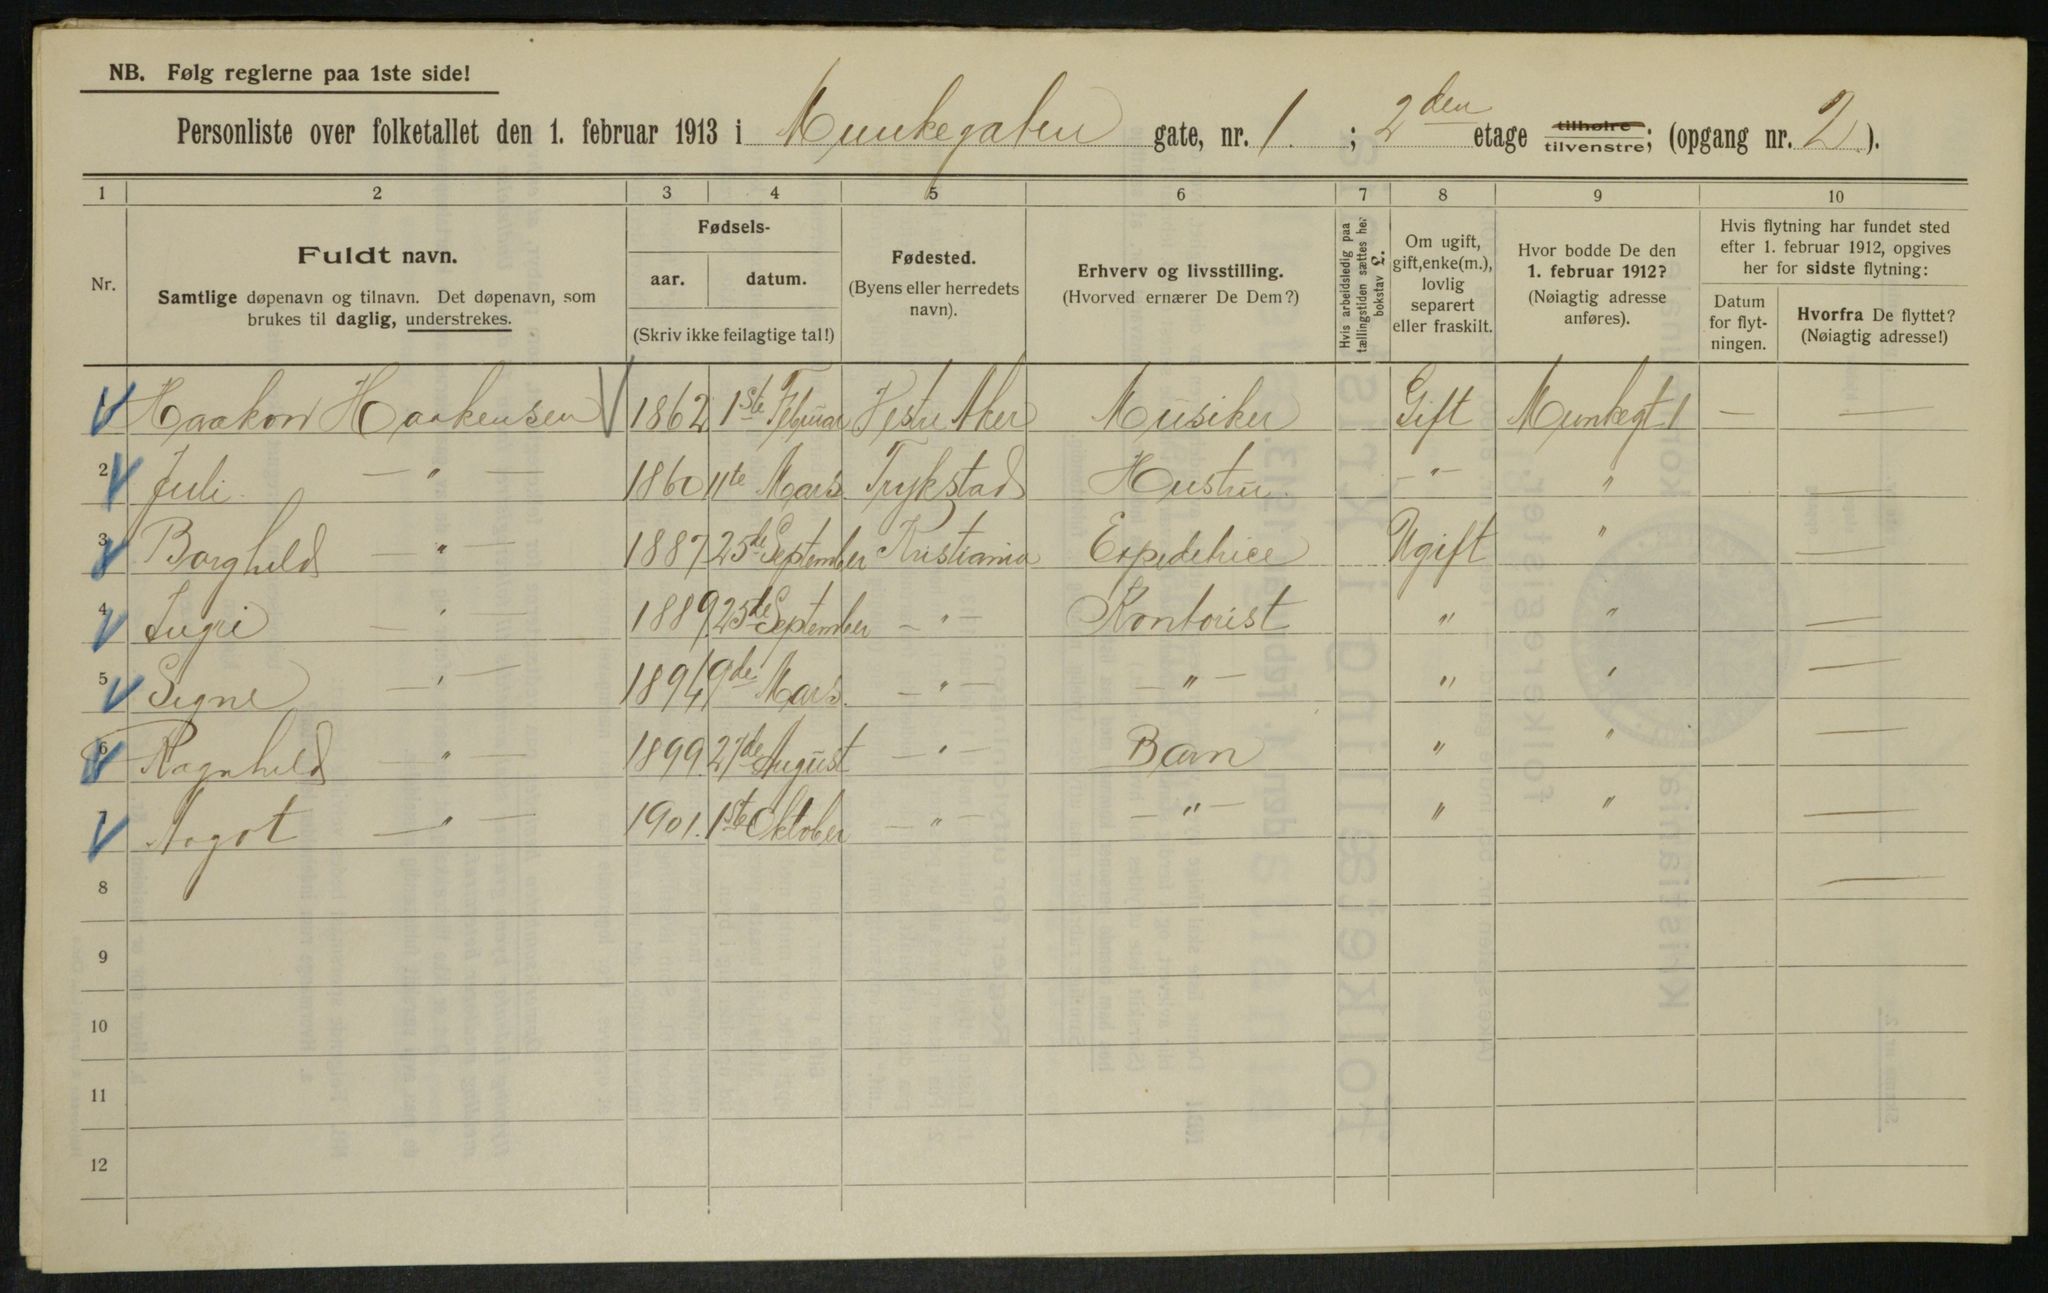 NB. Følg reglerne paa 1ste side!
Personliste over folketallet den 1. februar 1913 i Munkegaten gate, nr. 1. ; 2den etage tilhøire tilvenstre; (opgang nr. 2).
1 2 3 4 5 6 7 8 9 10
Nr.
Fuldt navn.
Samtlige døpenavn og tilnavn. Det døpenavn, som
brukes til daglig, understrekes.
Fødsels-
aar. datum.
(Skriv ikke feilagtige tal!)
Fødested.
(Byens eller herredets
navn).
Erhverv og livsstilling.
(Hvorved ernærer De Dem?)
Hvis arbeidsledig paa
tællingstiden sættes her
bokstav L.
Om ugift,
gift, enke(m.),
lovlig
separert
eller fraskilt.
Hvor bodde De den
1. februar 1912?
(Nøiagtig adresse
anføres).
Hvis flytning har fundet sted
efter 1. februar 1912, opgives
her for sidste flytning:
Datum
for flyt-
ningen.
Hvorfra De flyttet?
(Nøiagtig adresse!)
1 Haakon Haakensen 1862 1ste Februar Vestre Aker Musiker Gift Munkegt 1 — —
2 Juli — " — 1860 11te Mars Trykstad Hustru — " — " —
3 Borghild — " — 1887 25de September Kristiania Expeditrice Ugift " —
4 Ingri — " — 1889 25de September — " — Kontorist " " —
5 Signe — " — 1894 9de Mars — " — — " — " " —
6 Ragnhild — " — 1899 27de August — " — Barn " " —
7 Aagot — " — 1901. 1ste Oktober — " — — " — " " —
8 —
9
10
11
12